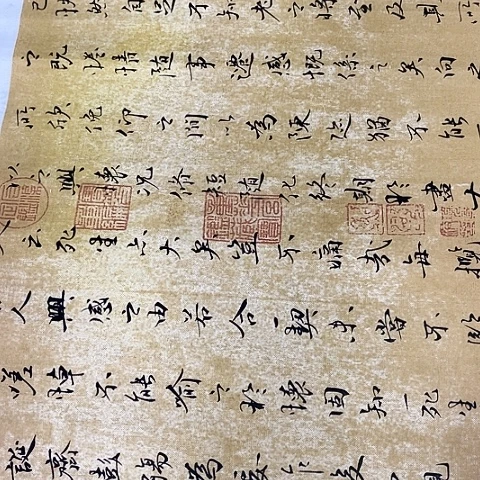 快然自足不知老之將至及其所
之既惓情隨事遷感慨係之矣向之
所欣俛仰之間以為陳迹猶不能
以之興懷況脩短隨化終期於盡古
人云死生亦大矣豈不痛哉每攬
人興感之由若合一契未嘗不臨
嗟悼不能喻之於懷固知一死生
誕齊彭殤為妄作後